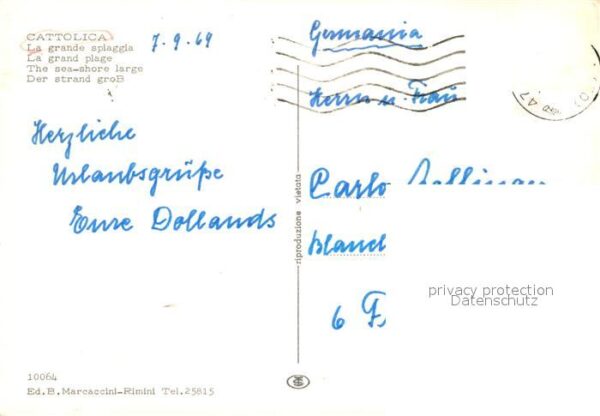 CATTOLICA
La grande spiaggia
La grand plage
The sea-shore large
Der strand groß
7.9.69
Herzliche
Urlaubsgrüße
Eure Dollands
riproduzione vietata
Germania
Herrn u. Frau
Carlo
6 F
47
privacy protection
Datenschutz
10064
Ed. B. Marcaccini-Rimini Tel. 25815